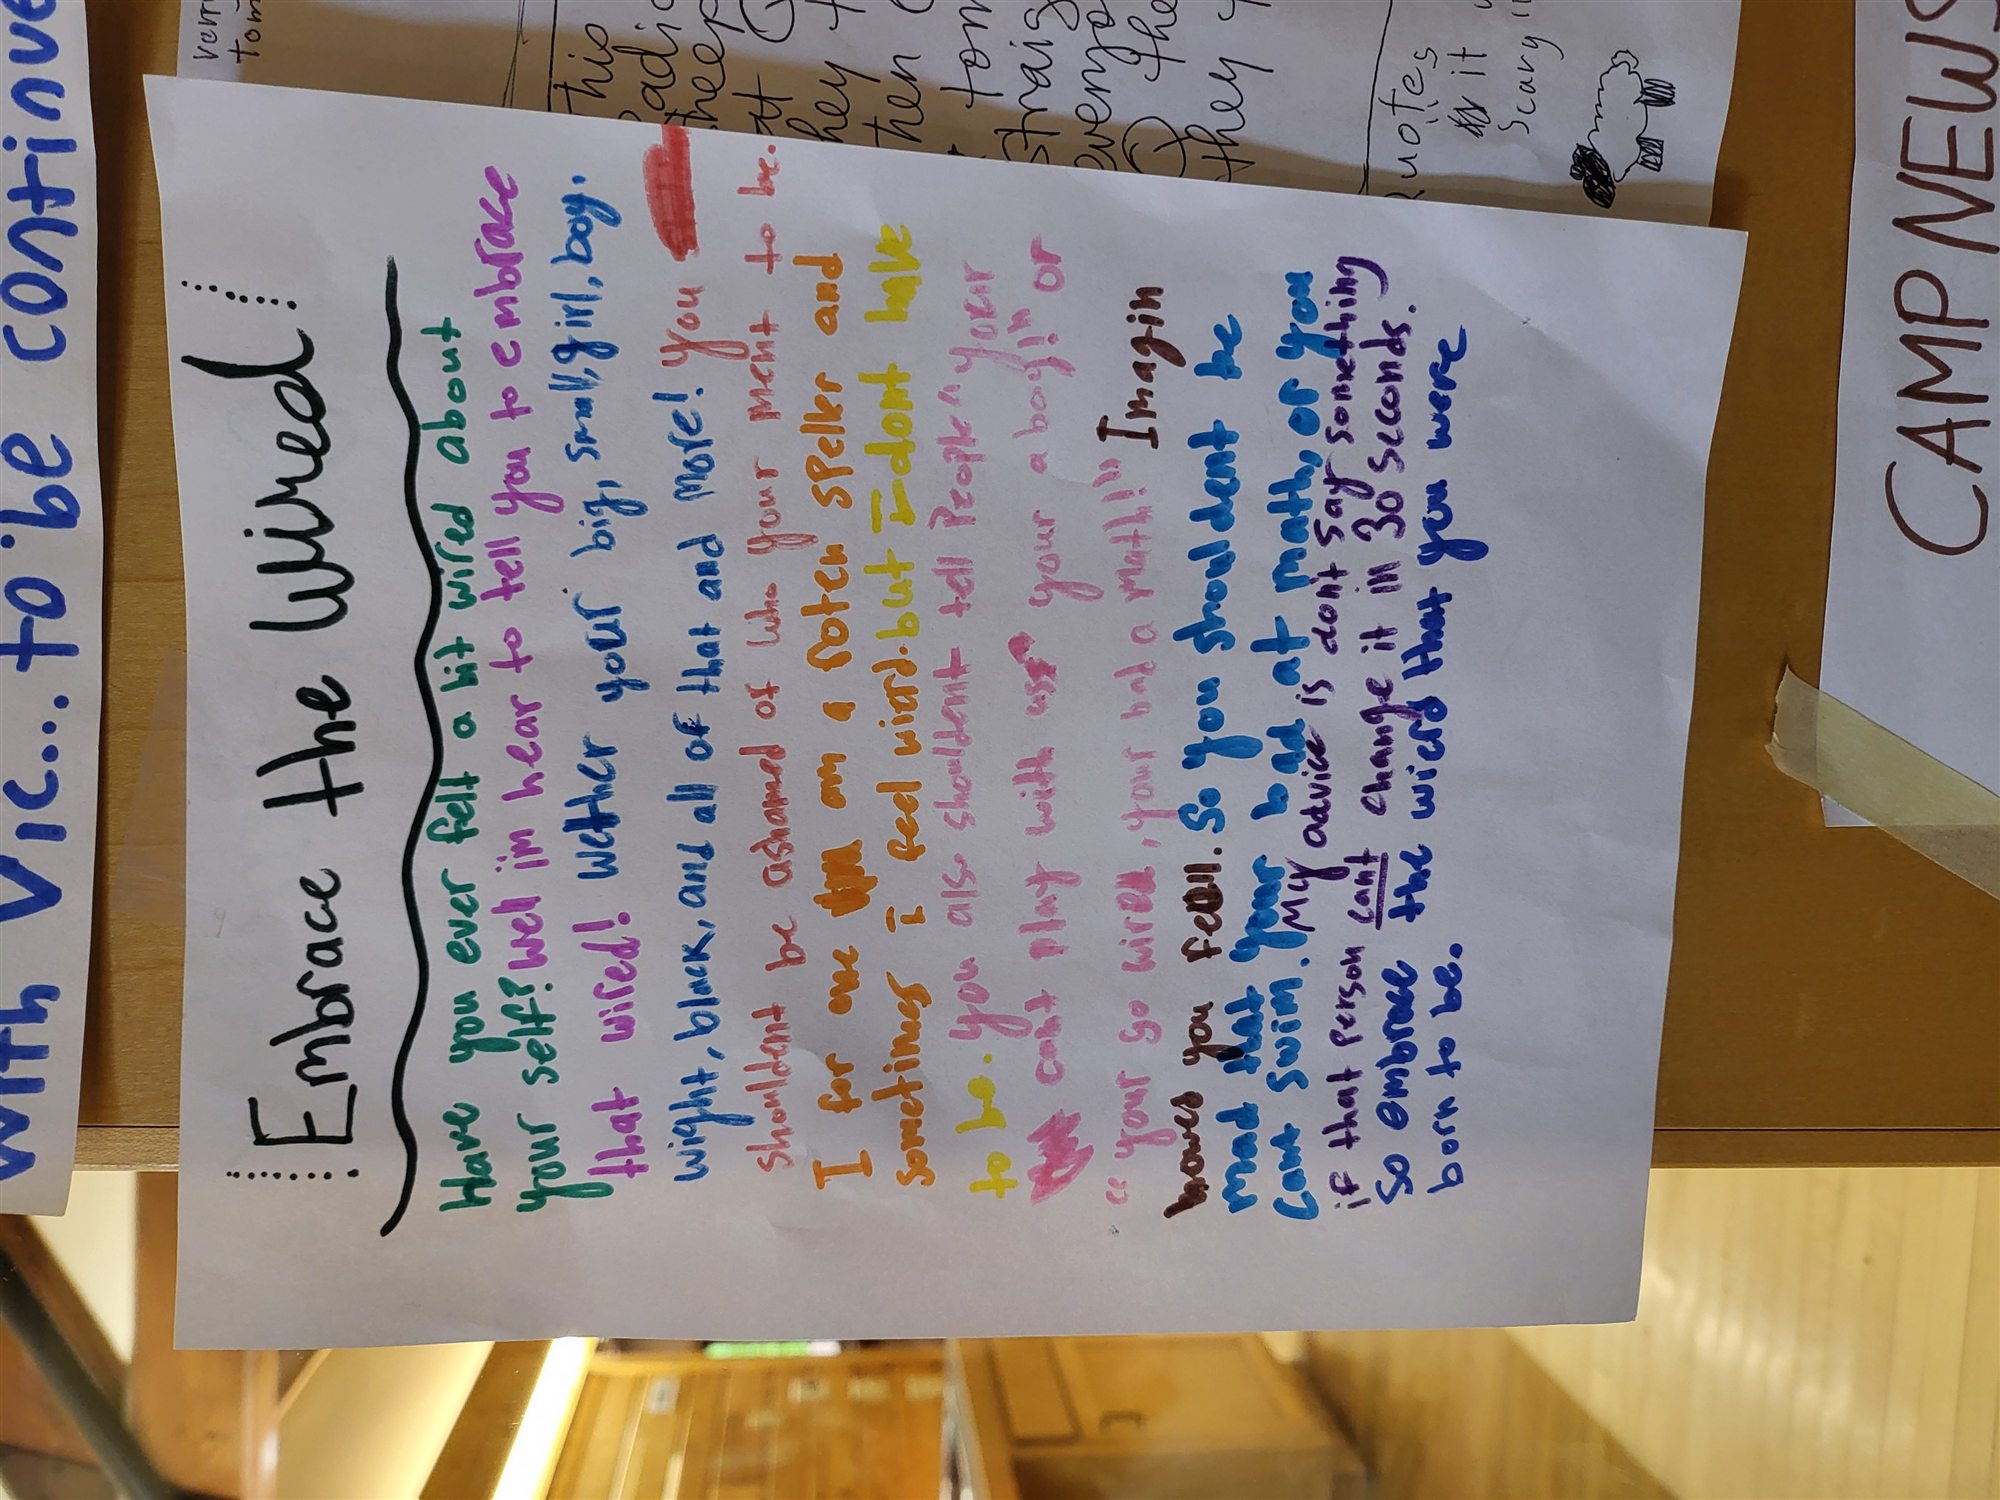 with Vic... to be continue
Embrace the Wired!
Have you ever felt a bit wired about
your self? well im hear to tell you to embrace
that wired! wether your big, small, girl, boy.
wight, black, and all of that and more! you
shouldent be ashamed of who your ment to be.
I for one am a roten speller and
sometimes i feel wird. but I dont have
to be. you also shouldent tell People "your
cant play with us" your a boy!" or
"your so wired, your bad a math!" Imagin
howed you fell. So you shouldent be
mad that your bad at math, or you
cant swim. My advice is don't say something
if that person cant change it in 30 seconds.
So embrace the wierd that you were
born to be.
This
they
then
tom
straig
everyo
the
they
it
scary
CAMP NEWS